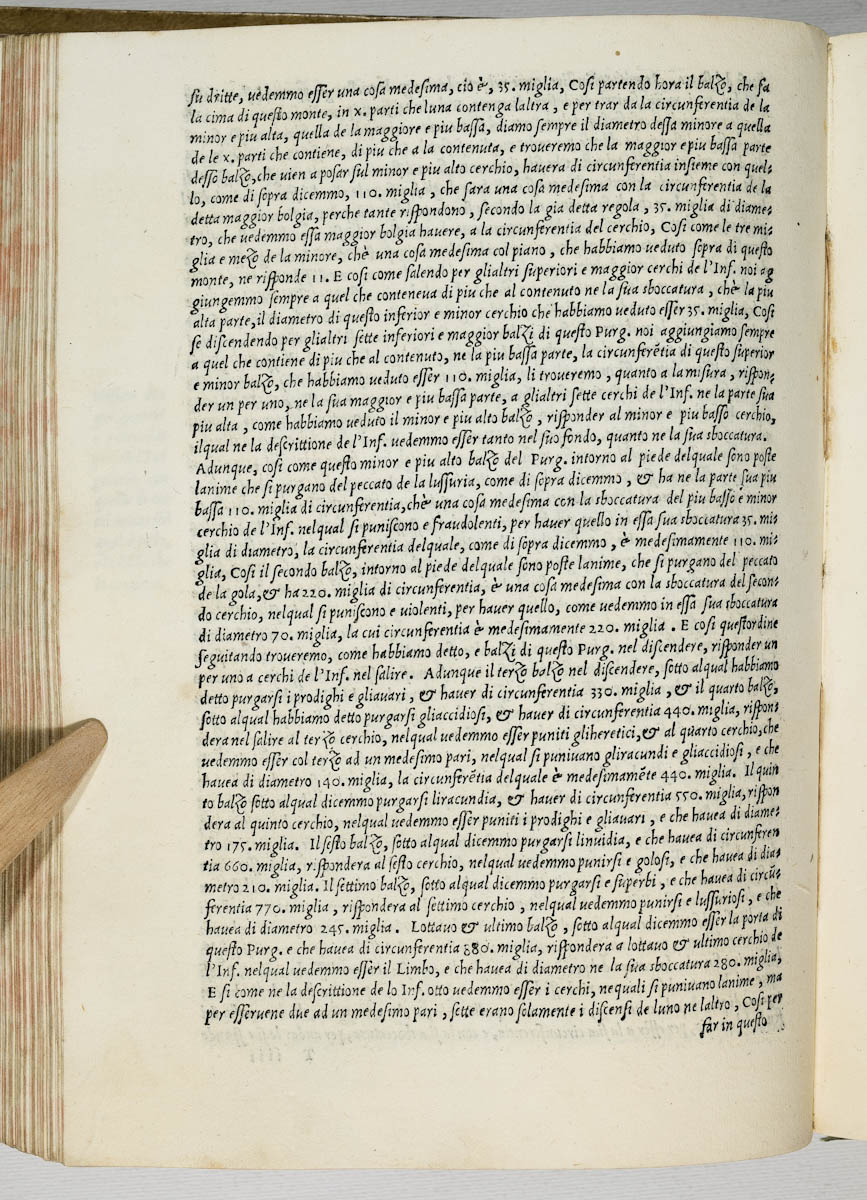 su dritte, vedemmo esser una cosa medesima, cio è, 35. miglia, Cosi partendo hora il balzo, che fa
la cima di questo monte, in x. parti che luna contenga laltra, e per trar da la circunferentia de la
minor e piu alta, quella de la maggiore e piu bassa, diamo sempre il diametro dessa minore a quella
de le x. parti che contiene, di piu che a la contenuta, e troveremo che la maggior e piu bassa parte
desso balzo, che vien a posar sul minor e piu alto cerchio, havera di circunferentia insieme con quel-
lo, come di sopra dicemmo, 110. miglia, che sara una cosa medesima con la circunferentia de la
detta maggior bolgia, perche tante rispondono, secondo la gia detta regola, 35. miglia di diame-
tro, che vedemmo essa maggior bolgia havere, a la circunferentia del cerchio, Cosi come le tre mi-
glia e mezo de la minore, chè una cosa medesima col piano, che habbiamo veduto sopra di questo
monte, ne risponde 11. E cosi come salendo per glialtri superiori e maggior cerchi de l'Inf. noi ag
giungemmo sempre a quel che conteneva di piu che al contenuto ne la sua sboccatura, chè la piu
alta parte, il diametro di questo inferior e minor cerchio che habbiamo veduto esser 35. miglia, Cosi
se discendendo per glialtri sette inferiori e maggior balzi di questo Purg. noi aggiungiamo sempre
a quel che contiene di piu che al contenuto, ne la piu bassa parte, la circunferētia di questo superior
e minor balzo, che habbiamo veduto esser 110. miglia, li troveremo, quanto a la misura, rispon-
der un per uno, ne la sua maggior e piu bassa parte, a glialtri sette cerchi de l'Inf. ne la parte sua
piu alta, come habbiamo veduto il minor e piu alto balzo, risponder al minor e piu basso cerchio,
ilqual ne la descrittione de l'Inf. vedemmo esser tanto nel suo fondo, quanto ne la sua sboccatura.
Adunque, cosi come questo minor e piu alto balzo del Purg. intorno al piede delquale sono poste
lanime che si purgano del peccato de la lussuria, come di sopra dicemmo, & ha ne la parte sua piu
bassa 110. miglia di circunferentia, chè una cosa medesima con la sboccatura del piu basso e minor
cerchio de l'Inf. nelqual si puniscono e fraudolenti, per haver quello in essa sua sboccatura 35. mi-
glia di diametro, la circunferentia delquale, come di sopra dicemmo, è medesimamente 110. mi-
glia, Cosi il secondo balzo, intorno al piede delquale sono poste lanime, che si purgano del peccato
de la gola, & ha 220. miglia di circunferentia, è una cosa medesima con la sboccatura del secon-
do cerchio, nelqual si puniscono e violenti, per haver quello, come vedemmo in essa sua sboccatura
di diametro 70. miglia, la cui circunferentia è medesimamente 220. miglia. E cosi questordine
seguitando troveremo, come habbiamo detto, e balzi di questo Purg. nel discendere, risponder un
per uno a cerchi de l'Inf. nel salire. Adunque il terzo balzo nel discendere, sotto alqual habbiamo
detto purgarsi i prodighi e gliavari, & haver di circunferentia 330. miglia, & il quarto balzo,
sotto alqual habbiamo detto purgarsi gliaccidiosi, & haver di circunferentia 440. miglia, rispon-
dera nel salire al terzo cerchio, nelqual vedemmo esser puniti gliheretici, & al quarto cerchio, che
vedemmo esser col terzo ad un medesimo pari, nelqual si punivano gliracundi e gliaccidiosi, e che
havea di diametro 140. miglia, la circunferētia delquale è medesimamēte 440. miglia. Il quin
to balzo sotto alqual dicemmo purgarsi liracundia, & haver di circunferentia 550. miglia, rispon
dera al quinto cerchio, nelqual vedemmo esser puniti i prodighi e gliavari, e che havea di diame-
tro 175. miglia. Il sesto balzo, sotto alqual dicemmo purgarsi linvidia, e che havea di circunferen
tia 660. miglia, rispondera al sesto cerchio, nelqual vedemmo punirsi e golosi, e che havea di dia-
metro 210. miglia. Il settimo balzo, sotto alqual dicemmo purgarsi e superbi, e che havea di circū-
ferentia 770. miglia, rispondera al settimo cerchio, nelqual vedemmo punirsi e lussuriosi, e che
havea di diametro 245. miglia. Lottavo & ultimo balzo, sotto alqual dicemmo esser la porta di
questo Purg. e che havea di circunferentia 880. miglia, rispondera a lottavo & ultimo cerchio de
l'Inf. nelqual vedemmo esser il Limbo, e che havea di diametro ne la sua sboccatura 280. miglia,
E si come ne la descrittione de lo Inf. otto vedemmo esser i cerchi, nequali si punivano lanime, ma
per esservene due ad un medesimo pari, sette erano solamente i discensi de luno ne laltro, Cosi per
far in questo